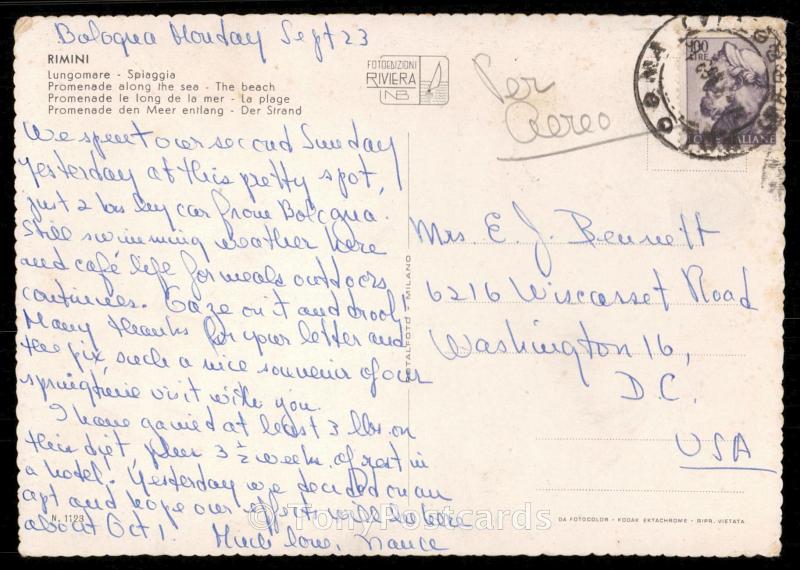 Bologna Monday Sept 23
RIMINI
Lungomare - Spiaggia
Promenade along the sea - The beach
Promenade le long de la mer - La plage
Promenade den Meer entlang - Der Strand
FOTOEDIZIONI
RIVIERA
NB
Per
Aereo
100
LIRE
ROMA
POSTE ITALIANE
We spent our second Sunday
yesterday at this pretty spot,
just 2 hrs by car from Bologna.
Still swimming weather here
and café life for meals outdoors
continues. Gaze on it and drool!
Many thanks for your letter and
the pix, such a nice souvenir of our
springtime visit with you.
I have gained at least 3 lbs. on
this diet, plus 3 1/2 weeks of rest in
a hotel. Yesterday we decided on an
apt and hope our effects will be here
about Oct 1. Much love,
Mrs. E. J. Bennett
6216 Wiscasset Road
Washington 16,
D.C.
USA
METALFOTO - MILANO
N. 1123
© TonyPostcards
DA FOTOCOLOR - KODAK EKTACHROME - RIPR. VIETATA